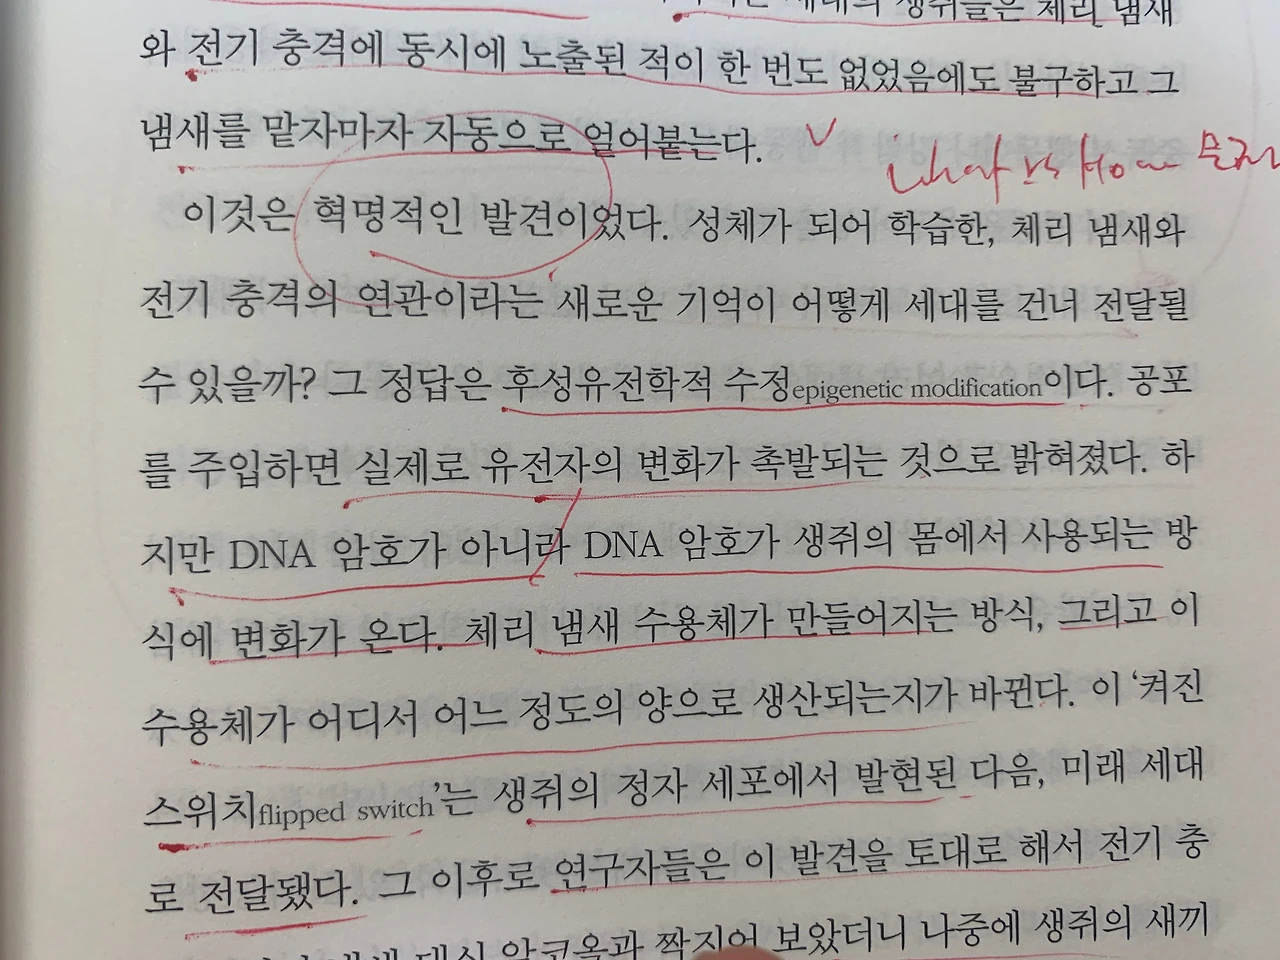 세대의 생쥐들은 체리 냄새
와 전기 충격에 동시에 노출된 적이 한 번도 없었음에도 불구하고 그
냄새를 맡자마자 자동으로 얼어붙는다.
What vs How 문제
이것은 혁명적인 발견이었다. 성체가 되어 학습한, 체리 냄새와
전기 충격의 연관이라는 새로운 기억이 어떻게 세대를 건너 전달될
수 있을까? 그 정답은 후성유전학적 수정epigenetic modification이다. 공포
를 주입하면 실제로 유전자의 변화가 촉발되는 것으로 밝혀졌다. 하
지만 DNA 암호가 아니라 DNA 암호가 생쥐의 몸에서 사용되는 방
식에 변화가 온다. 체리 냄새 수용체가 만들어지는 방식, 그리고 이
수용체가 어디서 어느 정도의 양으로 생산되는지가 바뀐다. 이 ‘켜진
스위치flipped switch’는 생쥐의 정자 세포에서 발현된 다음, 미래 세대
로 전달됐다. 그 이후로 연구자들은 이 발견을 토대로 해서 전기 충
대신 알코올과 짝지어 보았더니 나중에 생쥐의 새끼